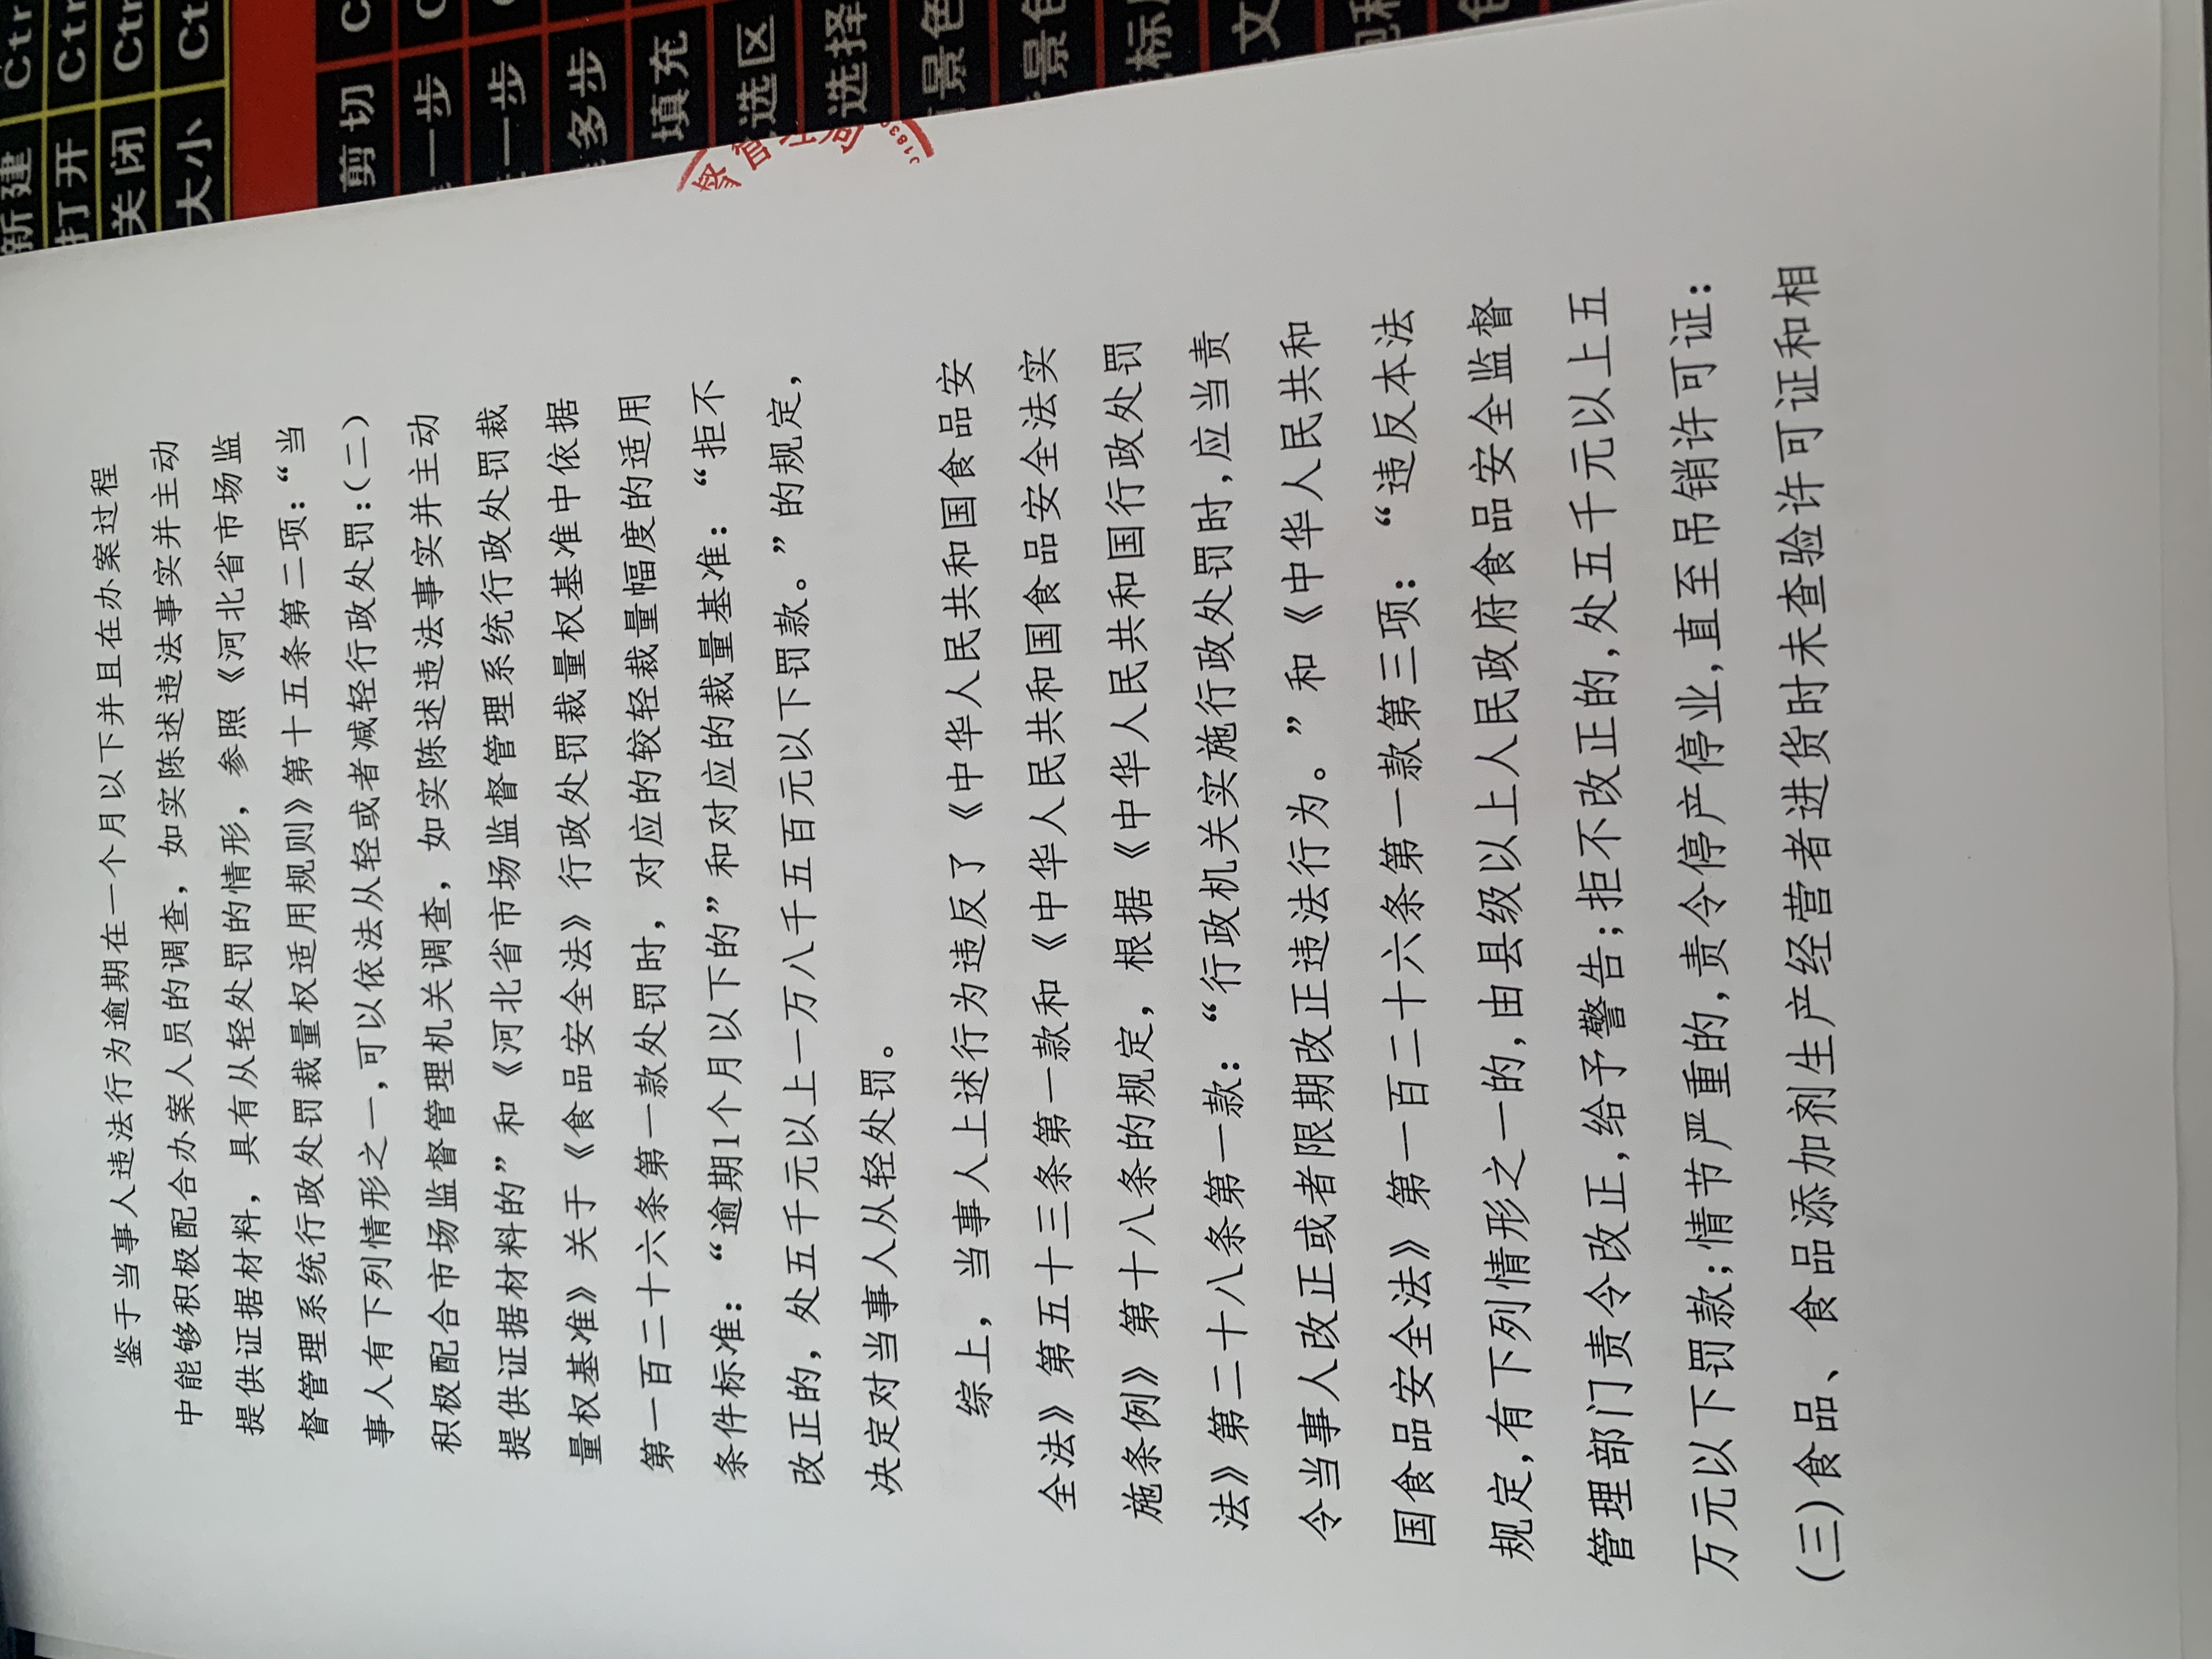 鉴于当事人违法行为逾期在一个月以下并且在办案过程
中能够积极配合办案人员的调查，如实陈述违法事实并主动
提供证据材料，具有从轻处罚的情形，参照《河北省市场监
督管理系统行政处罚裁量权适用规则》第十五条第二项：“当
事人有下列情形之一,可以依法从轻或者减轻行政处罚:(二)
积极配合市场监督管理机关调查，如实陈述违法事实并主动
提供证据材料的”和《河北省市场监督管理系统行政处罚裁
量权基准》关于《食品安全法》行政处罚裁量权基准中依据
第一百二十六条第一款处罚时，对应的较轻裁量幅度的适用
条件标准：“逾期1个月以下的”和对应的裁量基准：“拒不
改正的，处五千元以上一万八千五百元以下罚款。”的规定，
决定对当事人从轻处罚。
综上，当事人上述行为违反了《中华人民共和国食品安
全法》第五十三条第一款和《中华人民共和国食品安全法实
施条例》第十八条的规定，根据《中华人民共和国行政处罚
法》第二十八条第一款：“行政机关实施行政处罚时,应当责
令当事人改正或者限期改正违法行为。”和《中华人民共和
国食品安全法》第一百二十六条第一款第三项：“违反本法
规定,有下列情形之一的,由县级以上人民政府食品安全监督
管理部门责令改正,给予警告;拒不改正的,处五千元以上五
万元以下罚款;情节严重的,责令停产停业,直至吊销许可证:
(三)食品、食品添加剂生产经营者进货时未查验许可证和相
新建 Ctr
打开 Ctr
关闭 Ctr
大小 Ct
剪切 C
一步 C
一步
多步
填充
选区
选择
景色
景色
标
文